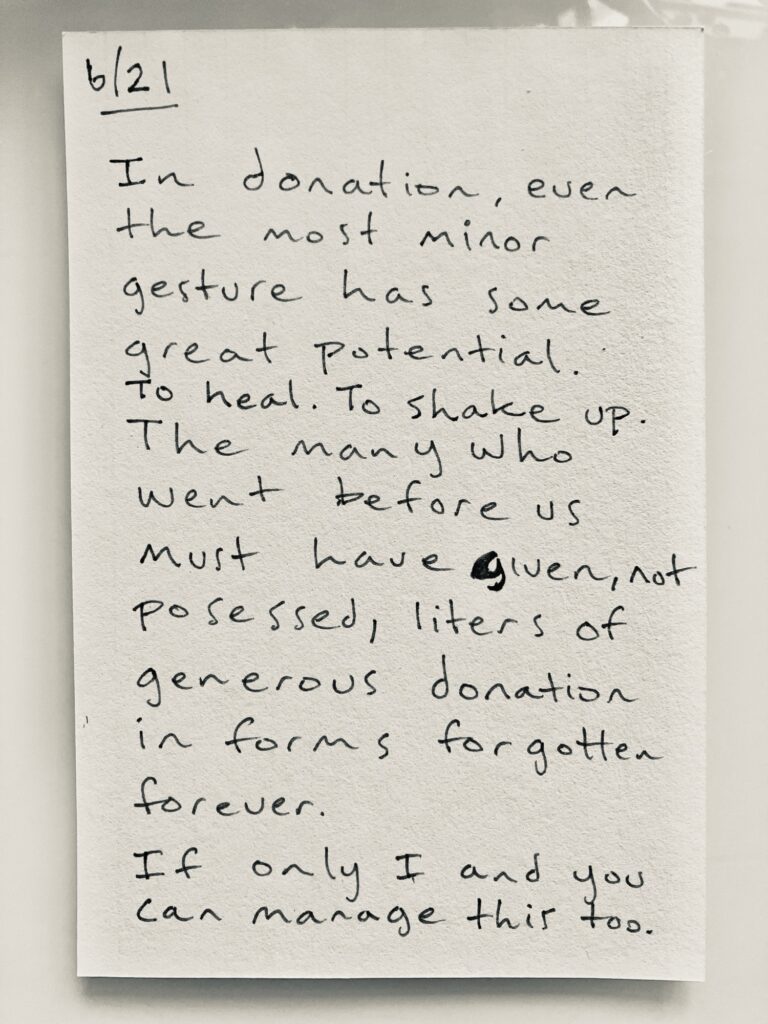 6/21
In donation, even
the most minor
gesture has some
great potential.
To heal. To shake up.
The many who
went before us
must have given, not
posessed, liters of
generous donation
in forms forgotten
forever.
If only I and you
can manage this too.